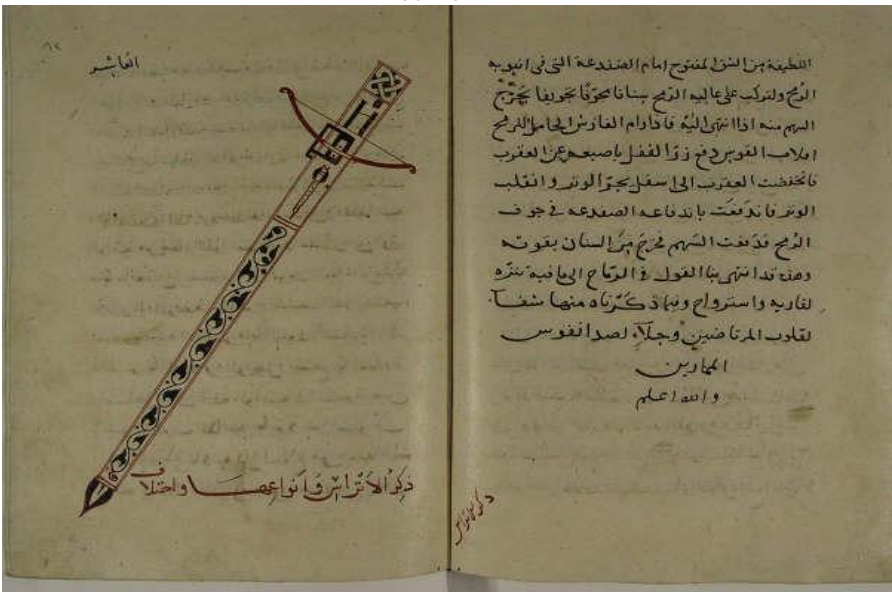 اللطيفة من الشق المفتوح امام الضفدعة التى فى انبوبه
الرمح ولتركب على عاليه الرمح سنانا مجوّفا تجويفا يخرج
السهم منه اذا انتهى اليه فاذا رام الفارس الحامل للرمح
افلات القوس دفع زرّ القفل باصبعه عن العقرب
فانخفضت العقرب الى اسفل بجرّ الوتر وانقلب
الوتر فاندفعت باندفاعه الضفدعه فى جوف
الرمح فدفعت السهم فخرج من السنان بقوته
وهذه قد انتهى بنا القول فى الرماح الى ما فيه نزه
لقاريه واسترواح وفيما ذكرناه منها شفآ
لقلوب المرتاضين وجلآء لصدا نفوس
الممارين
والله اعلم
ذكر الاتراس
العاشر
ذكر الاتراس وانواعها واختلاف